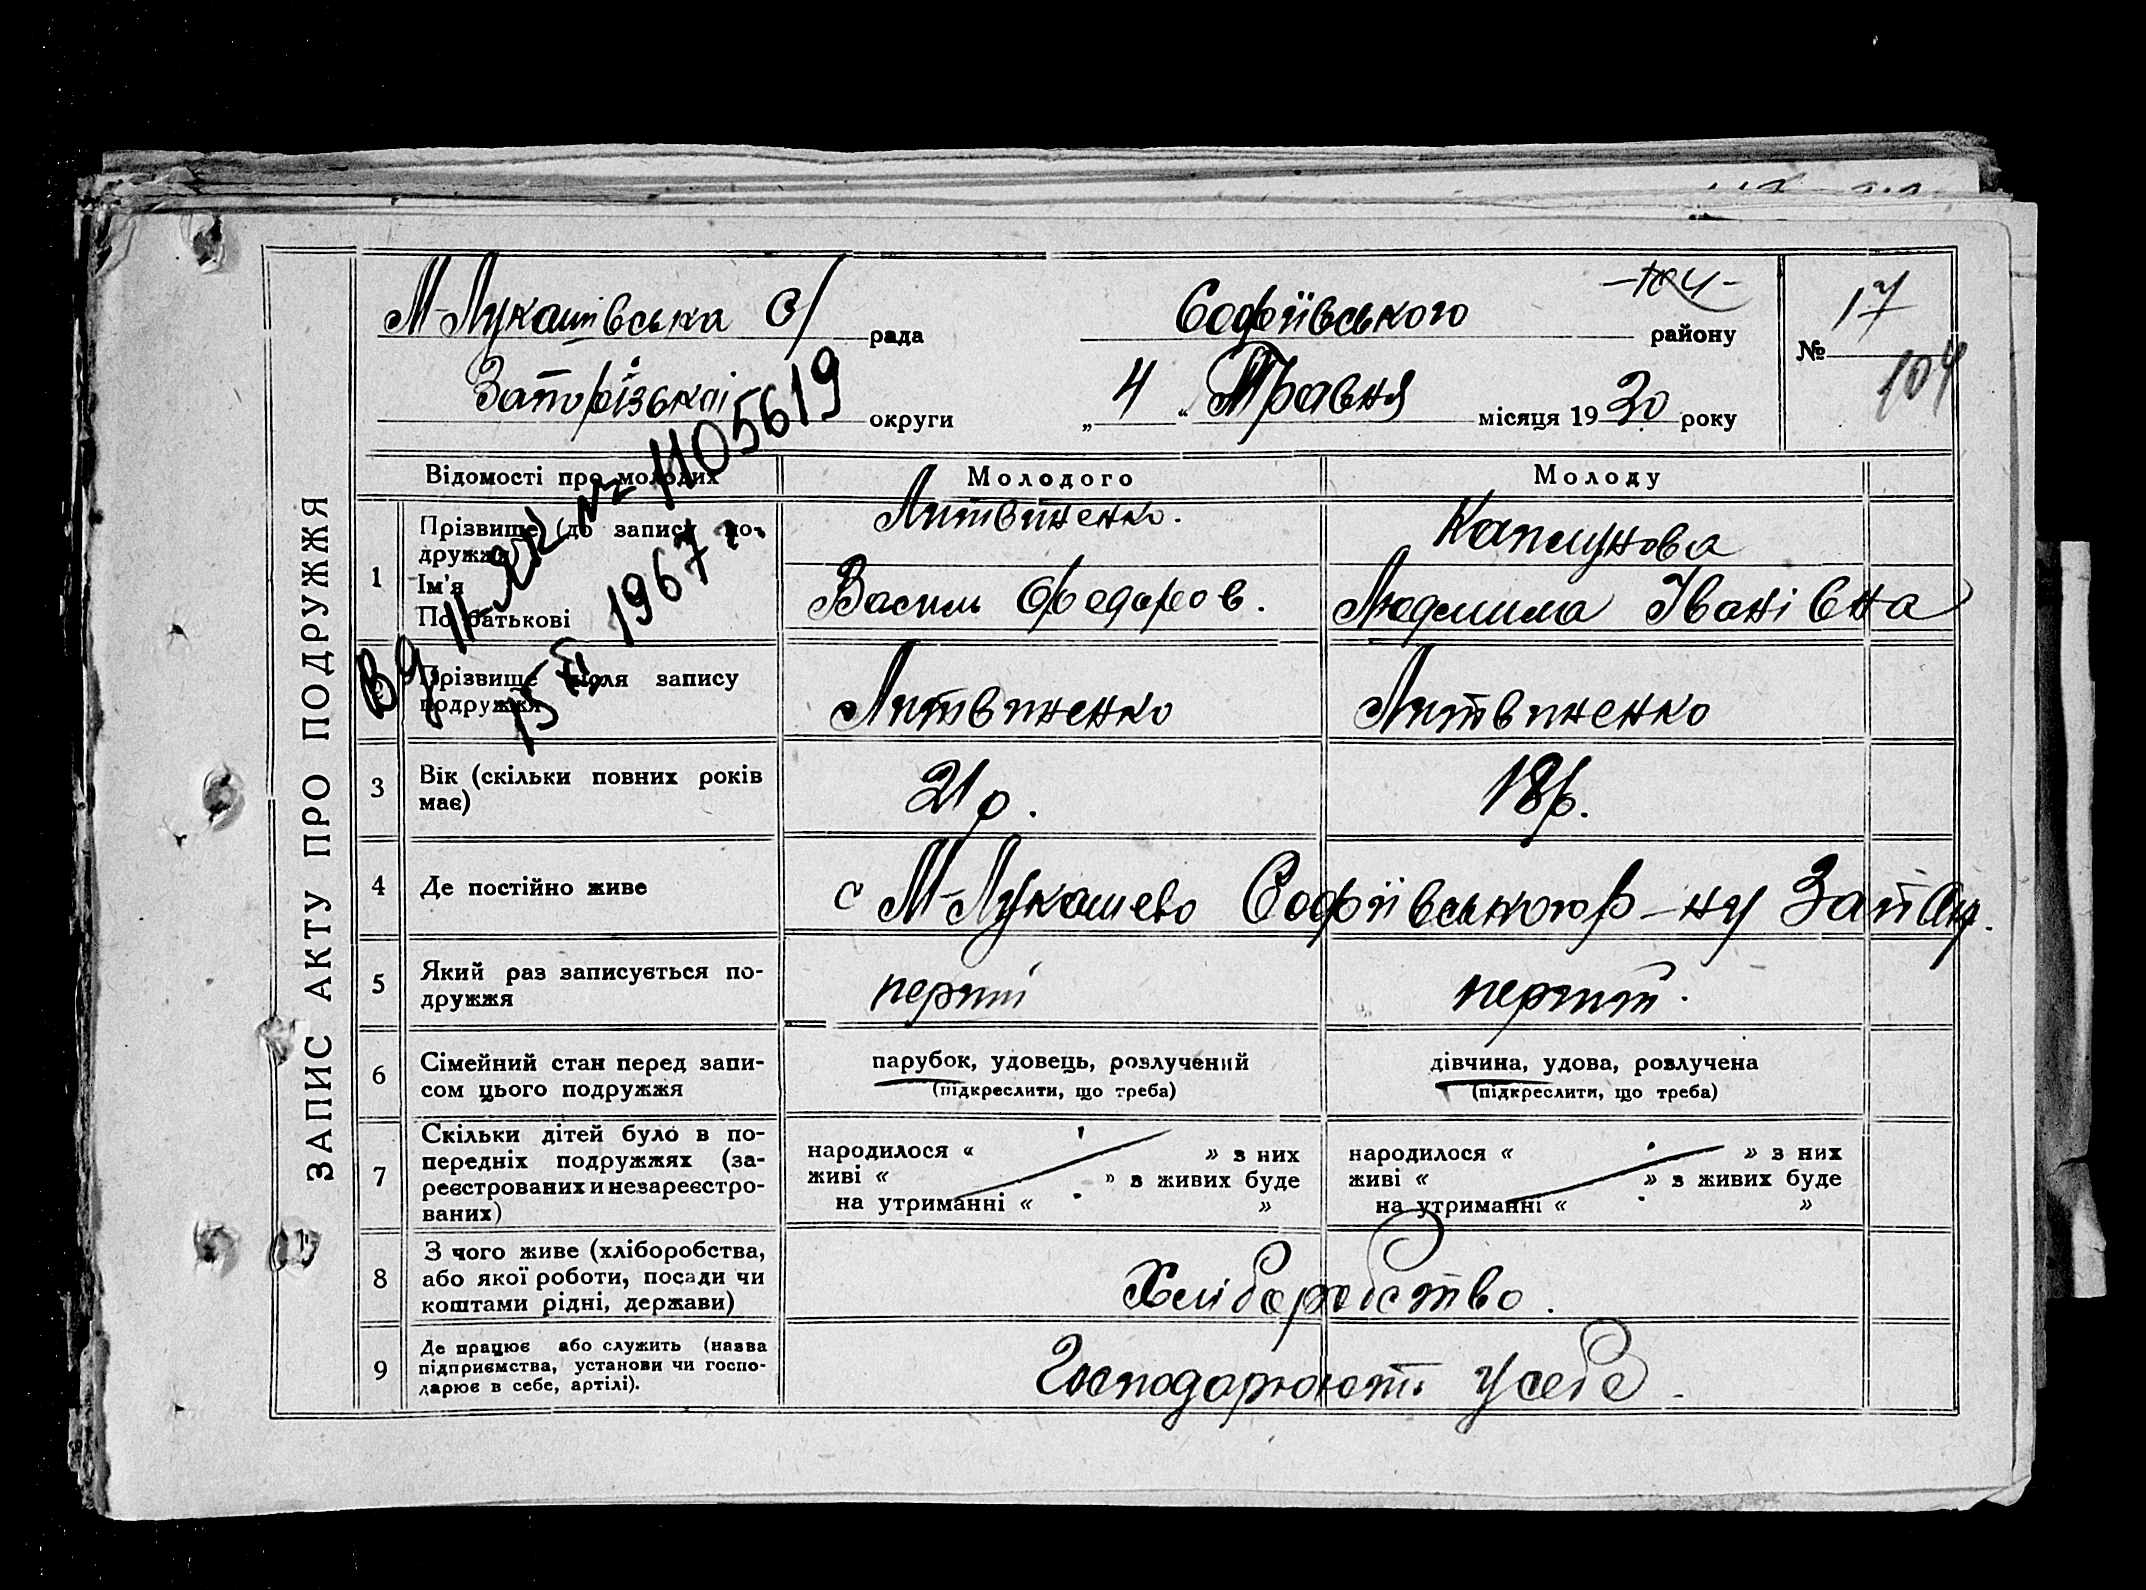 ЗАПИС АКТУ ПРО ПОДРУЖЖЯ
М-Лукашівська с/ рада
Софіївського району
-104-
№ 17
104
Запорізької округи
„ 4 “ Травня місяця 1930 року
Відомості про молодих
Молодого
Молоду
1
Прізвище (до запису по-
дружжя)
Ім'я
По батькові
Литвиненко.
Василь Федоров.
Каплунова
Людмила Іванівна
Прізвище після запису
подружжя
Литвиненко
Литвиненко
№ 1105619
1967 г.
3
Вік (скільки повних років
має)
21 р.
18 р.
4
Де постійно живе
с М-Лукашево Софіївського р-ну Зап Окр.
5
Який раз записується по-
дружжя
перший
перший.
6
Сімейний стан перед запи-
сом цього подружжя
парубок, удовець, розлучений
(підкреслити, що треба)
дівчина, удова, розлучена
(підкреслити, що треба)
7
Скільки дітей було в по-
передніх подружжях (за-
реєстрованих и незареєстро-
ваних)
народилося « » з них
живі « » з живих буде
на утриманні « »
народилося « » з них
живі « » з живих буде
на утриманні « »
8
З чого живе (хліборобства,
або якої роботи, посади чи
коштами рідні, держави)
Хліборобство.
9
Де працює або служить (назва
підприємства, установи чи госпо-
дарює в себе, артілі).
Господарюють у себе.